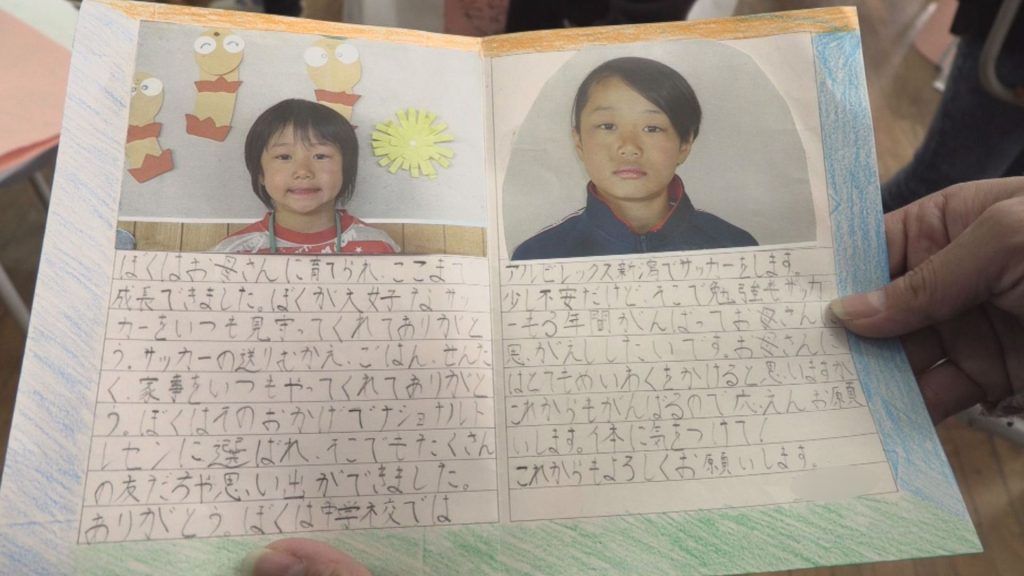 ぼくはお母さんに育てられ、ここまで
成長できました。ぼくが大好きなサッ
カーをいつも見守ってくれてありがと
う。サッカーの送りむかえ、ごはん、せんた
く、家事をいつもやってくれてありがと
う。ぼくはそのおかげでナショナルト
レセンに選ばれ、そこでもたくさん
の友だちや思い出ができました。
ありがとう。ぼくは中学校では
アルビレックス新潟でサッカーをします。
少し不安だけど、そこで勉強もサッカ
ーも3年間がんばってお母さんに
恩がえししたいです。お母さんに
はとてもめいわくをかけると思いますが
これからもがんばるので応えんお願
いします。体に気をつけて!
これからもよろしくお願いします。